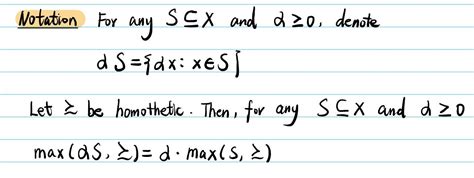 Notation For any S ⊆ X and α ≥ 0, denote
αS = {αx : x ∈ S}
Let ≿ be homothetic. Then, for any S ⊆ X and α ≥ 0
max(αS, ≿) = α · max(S, ≿)